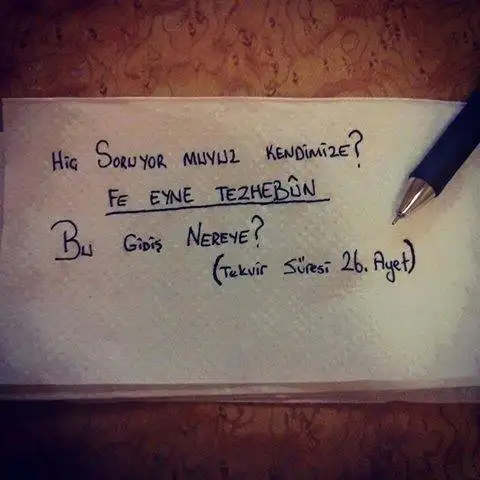 Hiç Soruyor muyuz kendimize?
Fe eyne tezhebûn
Bu Gidiş Nereye?
(Tekvir Sûresi 26. Ayet)